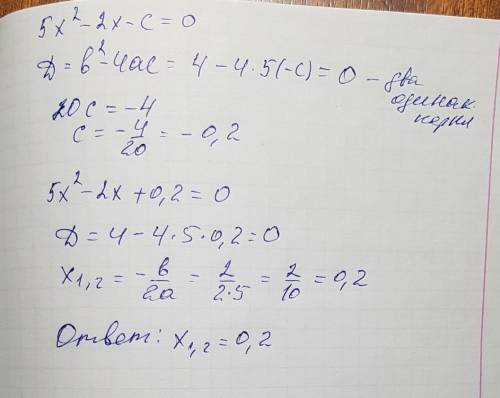 5x² - 2x - c = 0
Д = b² - 4ac = 4 - 4·5(-c) = 0 - два одинак. корня
20c = -4
c = -4/20 = -0,2
5x² - 2x + 0,2 = 0
Д = 4 - 4·5·0,2 = 0
x₁,₂ = -b/2a = 2/2·5 = 2/10 = 0,2
Ответ: x₁,₂ = 0,2